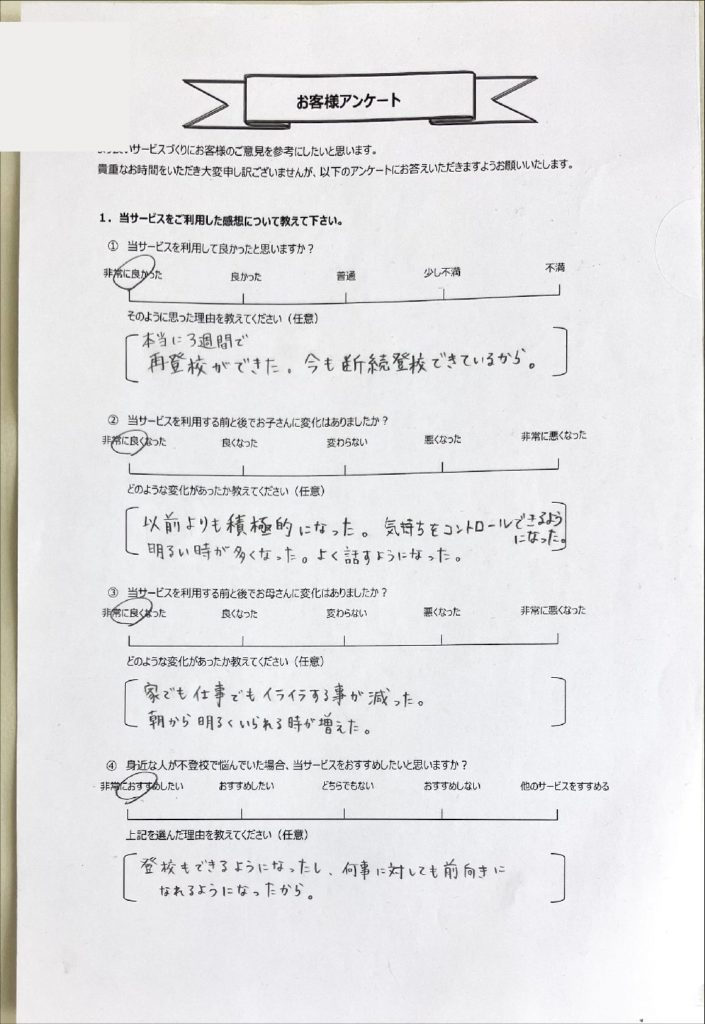 お客様アンケート
よいサービスづくりにお客様のご意見を参考にしたいと思います。
貴重なお時間をいただき大変申し訳ございませんが、以下のアンケートにお答えいただきますようお願いいたします。
1．当サービスをご利用した感想について教えて下さい。
① 当サービスを利用して良かったと思いますか？
非常に良かった 良かった 普通 少し不満 不満
そのように思った理由を教えてください（任意）
本当に3週間で
再登校ができた。今も断続登校できているから。
② 当サービスを利用する前と後でお子さんに変化はありましたか？
非常に良くなった 良くなった 変わらない 悪くなった 非常に悪くなった
どのような変化があったか教えてください（任意）
以前よりも積極的になった。気持ちをコントロールできるよう
になった。
明るい時が多くなった。よく話すようになった。
③ 当サービスを利用する前と後でお母さんに変化はありましたか？
非常に良くなった 良くなった 変わらない 悪くなった 非常に悪くなった
どのような変化があったか教えてください（任意）
家でも仕事でもイライラする事が減った。
朝から明るくいられる時が増えた。
④ 身近な人が不登校で悩んでいた場合、当サービスをおすすめしたいと思いますか？
非常におすすめしたい おすすめしたい どちらでもない おすすめしない 他のサービスをすすめる
上記を選んだ理由を教えてください（任意）
登校もできるようになったし、何事に対しても前向きに
なれるようになったから。